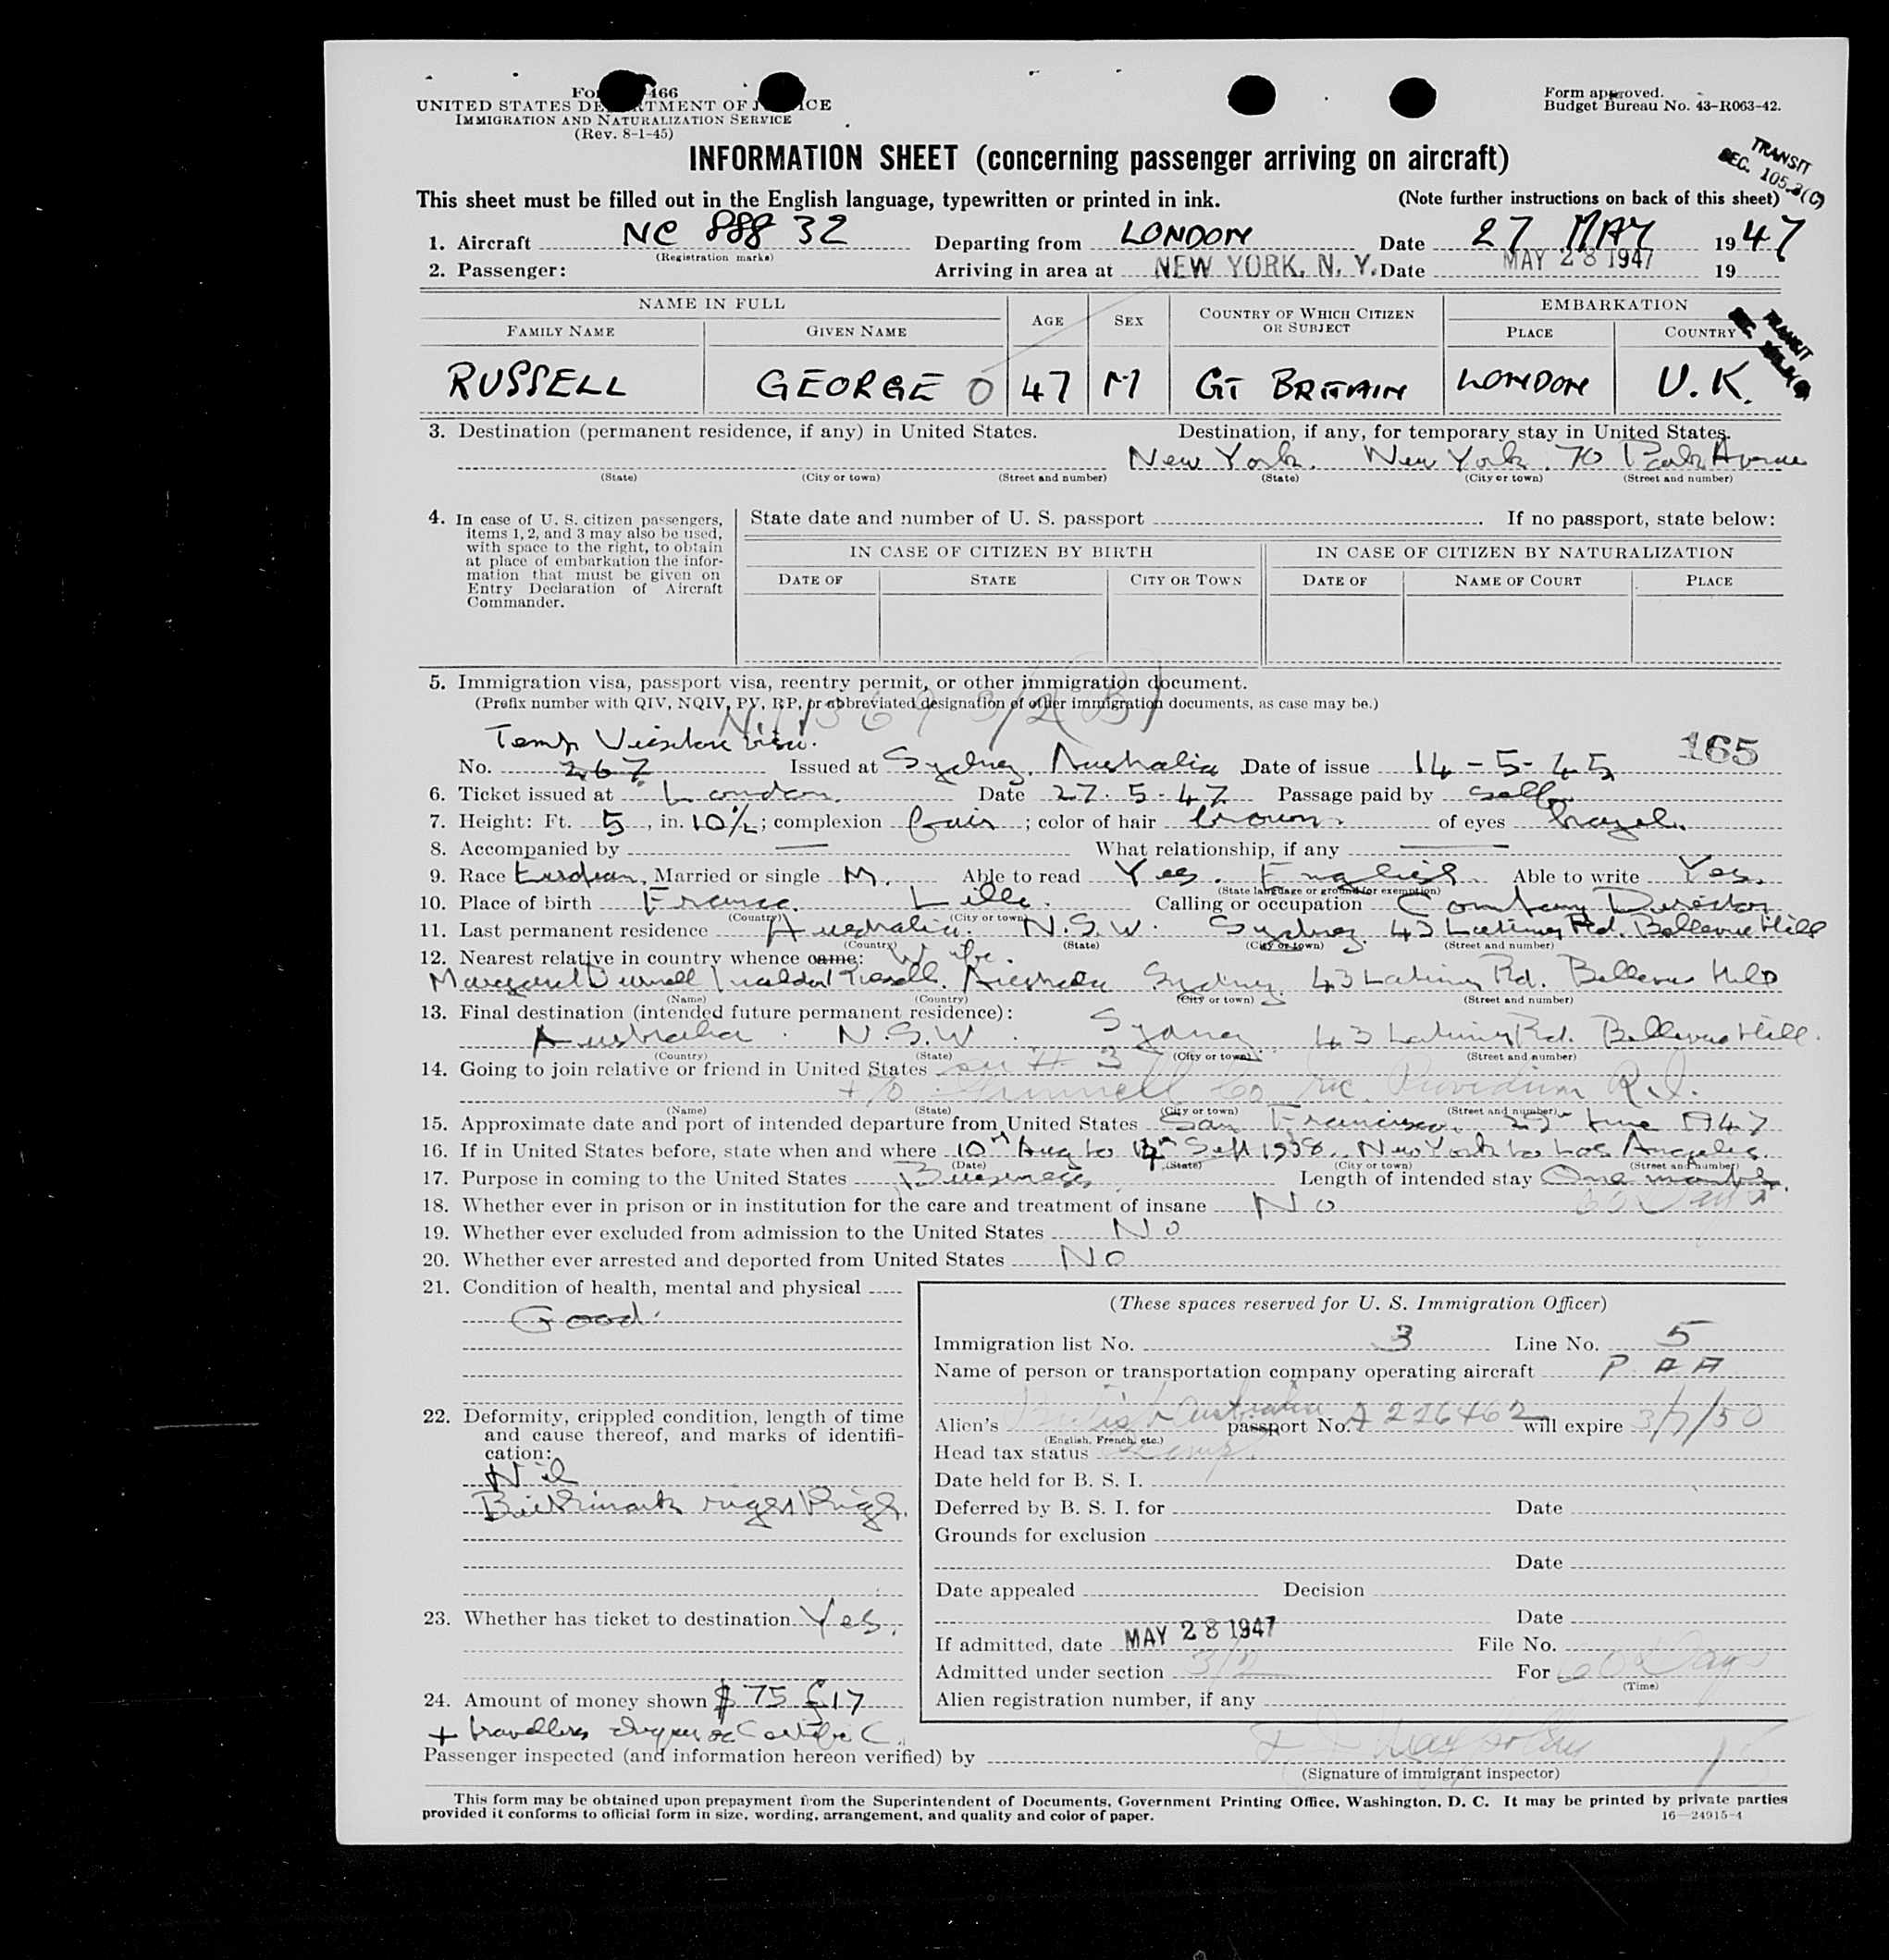 466
UNITED STATES DEPARTMENT OF JUSTICE
IMMIGRATION AND NATURALIZATION SERVICE
(Rev. 8-1-45)
Form approved.
Budget Bureau No. 43-R063-42.
INFORMATION SHEET (concerning passenger arriving on aircraft)
TRANSIT
SEC. 105.3(C)
This sheet must be filled out in the English language, typewritten or printed in ink. (Note further instructions on back of this sheet)
1. Aircraft NC 88832 Departing from LONDON Date 27 MAY 1947
(Registration marks)
2. Passenger: Arriving in area at NEW YORK, N. Y. Date MAY 28 1947 19
NAME IN FULL AGE SEX COUNTRY OF WHICH CITIZEN OR SUBJECT EMBARKATION
FAMILY NAME GIVEN NAME PLACE COUNTRY
TRANSIT
RUSSELL GEORGE O 47 M GT BRITAIN LONDON U.K.
3. Destination (permanent residence, if any) in United States. Destination, if any, for temporary stay in United States.
New York. New York. 70 Park Avenue
(State) (City or town) (Street and number) (State) (City or town) (Street and number)
4. In case of U. S. citizen passengers, items 1, 2, and 3 may also be used, with space to the right, to obtain at place of embarkation the information that must be given on Entry Declaration of Aircraft Commander.
State date and number of U. S. passport If no passport, state below:
IN CASE OF CITIZEN BY BIRTH IN CASE OF CITIZEN BY NATURALIZATION
DATE OF STATE CITY OR TOWN DATE OF NAME OF COURT PLACE
5. Immigration visa, passport visa, reentry permit, or other immigration document.
(Prefix number with QIV, NQIV, PV, RP, or abbreviated designation of other immigration documents, as case may be.)
Temp Visitors visa.
165
No. 267 Issued at Sydney. Australia Date of issue 14-5-45
6. Ticket issued at London. Date 27.5.47 Passage paid by Self
7. Height: Ft. 5, in. 10½; complexion fair; color of hair brown. of eyes hazel.
8. Accompanied by — What relationship, if any —
9. Race European. Married or single M. Able to read Yes. English. Able to write Yes.
(State language or ground for exemption)
10. Place of birth France. Lille. Calling or occupation Company Director
(Country) (City or town)
11. Last permanent residence Australia. N.S.W. Sydney. 43 Latimer Rd. Bellevue Hill
(Country) (State) (City or town) (Street and number)
12. Nearest relative in country whence came: Wife.
Margaret Russell. Australia Sydney. 43 Latimer Rd. Bellevue Hill
(Name) (Country) (City or town) (Street and number)
13. Final destination (intended future permanent residence):
Australia. N.S.W. Sydney 43 Latimer Rd. Bellevue Hill.
(Country) (State) (City or town) (Street and number)
14. Going to join relative or friend in United States # 3
Grinnell Co Inc. R.I.
(Name) (State) (City or town) (Street and number)
15. Approximate date and port of intended departure from United States San Francisco. June 1947
16. If in United States before, state when and where 10th Aug to Sept 1938. New York to Los Angeles.
(Date) (State) (City or town) (Street and number)
17. Purpose in coming to the United States Business Length of intended stay One month.
60 Days
18. Whether ever in prison or in institution for the care and treatment of insane No
19. Whether ever excluded from admission to the United States No
20. Whether ever arrested and deported from United States No
21. Condition of health, mental and physical
Good.
22. Deformity, crippled condition, length of time and cause thereof, and marks of identification:
Nil
Birthmark right thigh.
23. Whether has ticket to destination Yes.
24. Amount of money shown $75 £17
+ travellers
(These spaces reserved for U. S. Immigration Officer)
Immigration list No. 3 Line No. 5
Name of person or transportation company operating aircraft P A A
Alien's British Australian passport No. A 226462 will expire 3/7/50
(English, French, etc.)
Head tax status
Date held for B. S. I.
Deferred by B. S. I. for Date
Grounds for exclusion
Date
Date appealed Decision
Date
If admitted, date MAY 28 1947 File No.
Admitted under section 3/2 For 60 Days
(Time)
Alien registration number, if any
Passenger inspected (and information hereon verified) by
(Signature of immigrant inspector)
This form may be obtained upon prepayment from the Superintendent of Documents, Government Printing Office, Washington, D. C. It may be printed by private parties
provided it conforms to official form in size, wording, arrangement, and quality and color of paper. 16—24915-4